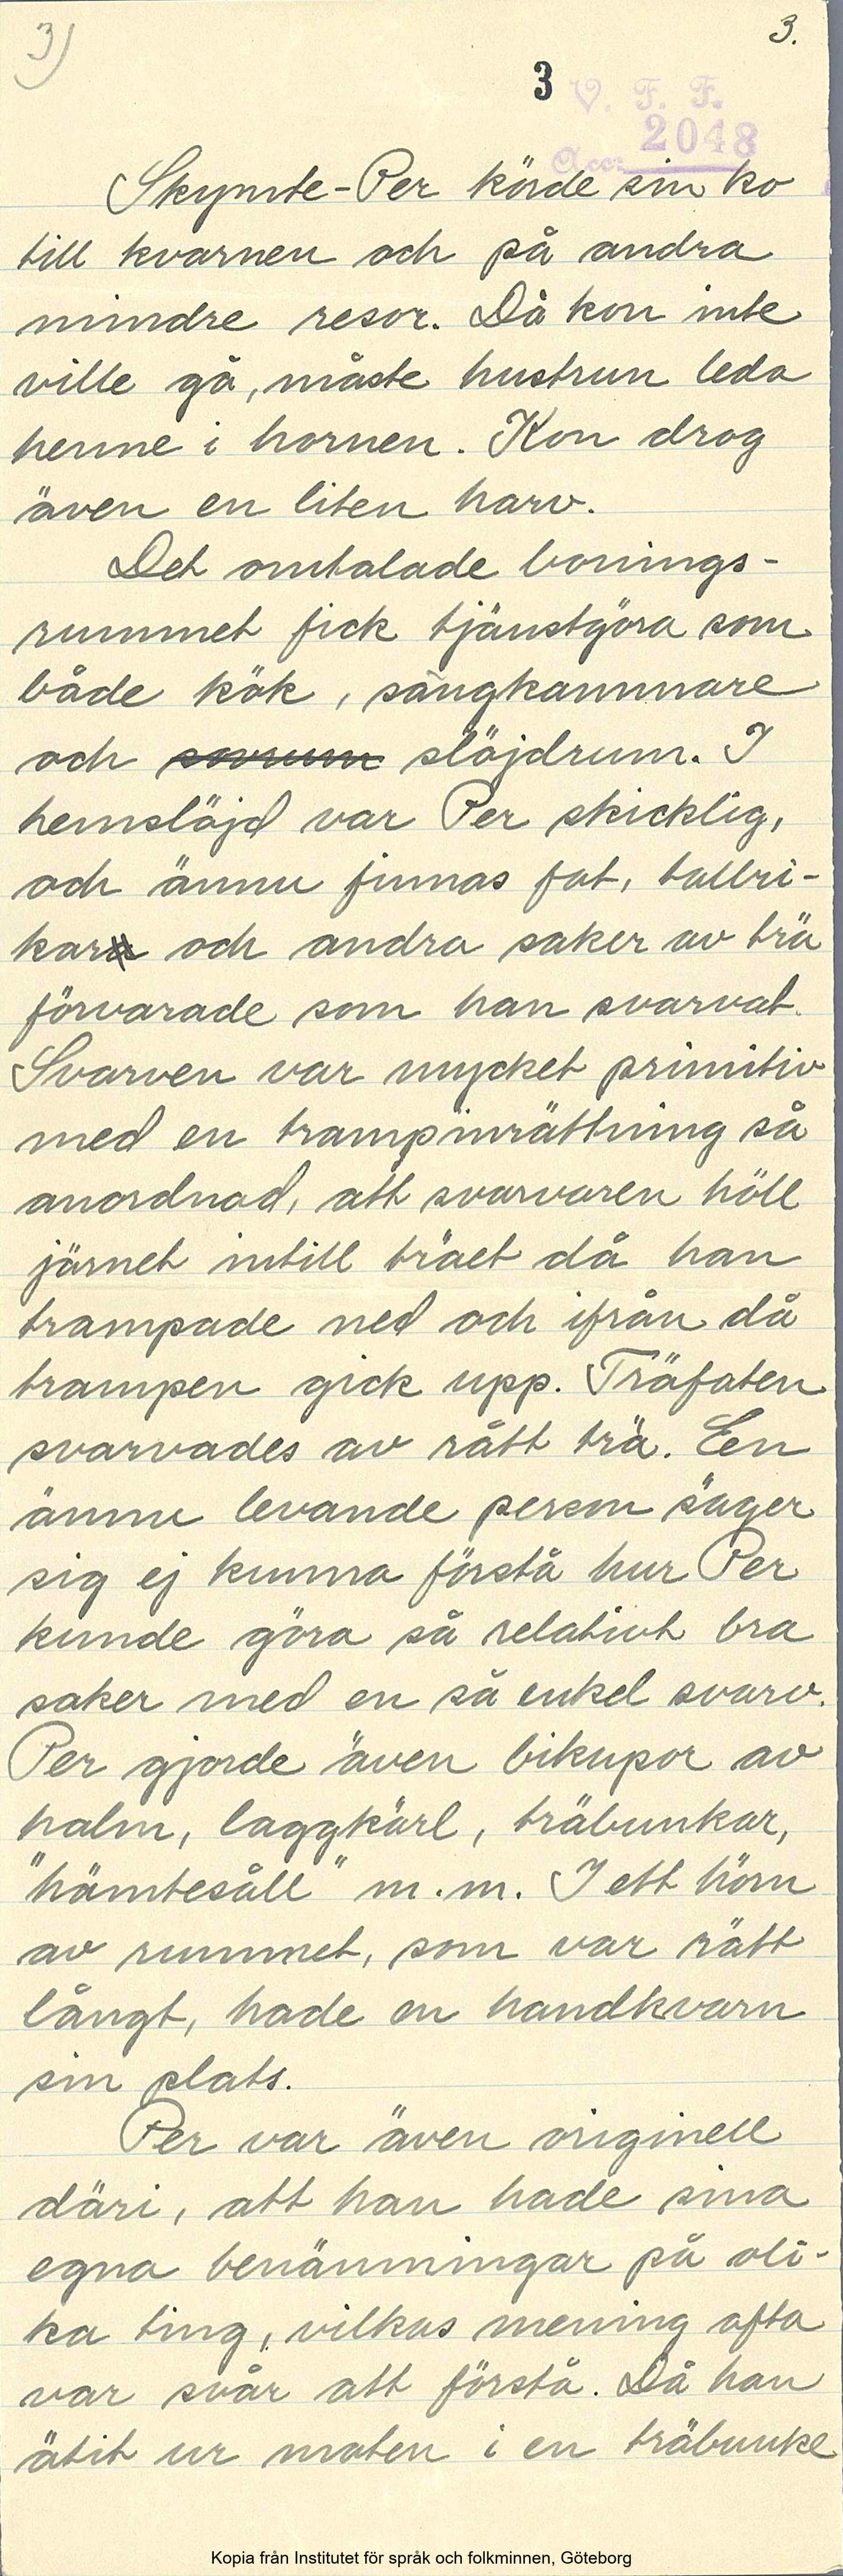 3) 3.
3 V. F. F.
2048
Acc:
Skymte-Per körde sin ko
till kvarnen och på andra
mindre resor. Då kon inte
ville gå, måste hustrun leda
henne i hornen. Kon drog
även en liten harv.
Det omtalade bonings-
rummet fick tjänstgöra som
både kök, sängkammare
och sovrum slöjdrum. I
hemslöjd var Per skicklig,
och ännu finnas fat, tallri-
kar och andra saker av trä
förvarade som han svarvat.
Svarven var mycket primitiv
med en trampinrättning så
anordnad, att svarvaren höll
järnet intill träet då han
trampade ned och ifrån då
trampen gick upp. Träfaten
svarvades av rått trä. En
ännu levande person säger
sig ej kunna förstå hur Per
kunde göra så relativt bra
saker med en så enkel svarv.
Per gjorde även bikupor av
halm, laggkärl, träbunkar,
"hämtesåll" m.m. I ett hörn
av rummet, som var rätt
långt, hade en handkvarn
sin plats.
Per var även originell
däri, att han hade sina
egna benämningar på oli-
ka ting, vilkas mening ofta
var svår att förstå. Då han
ätit ur maten i en träbunke
Kopia från Institutet för språk och folkminnen, Göteborg